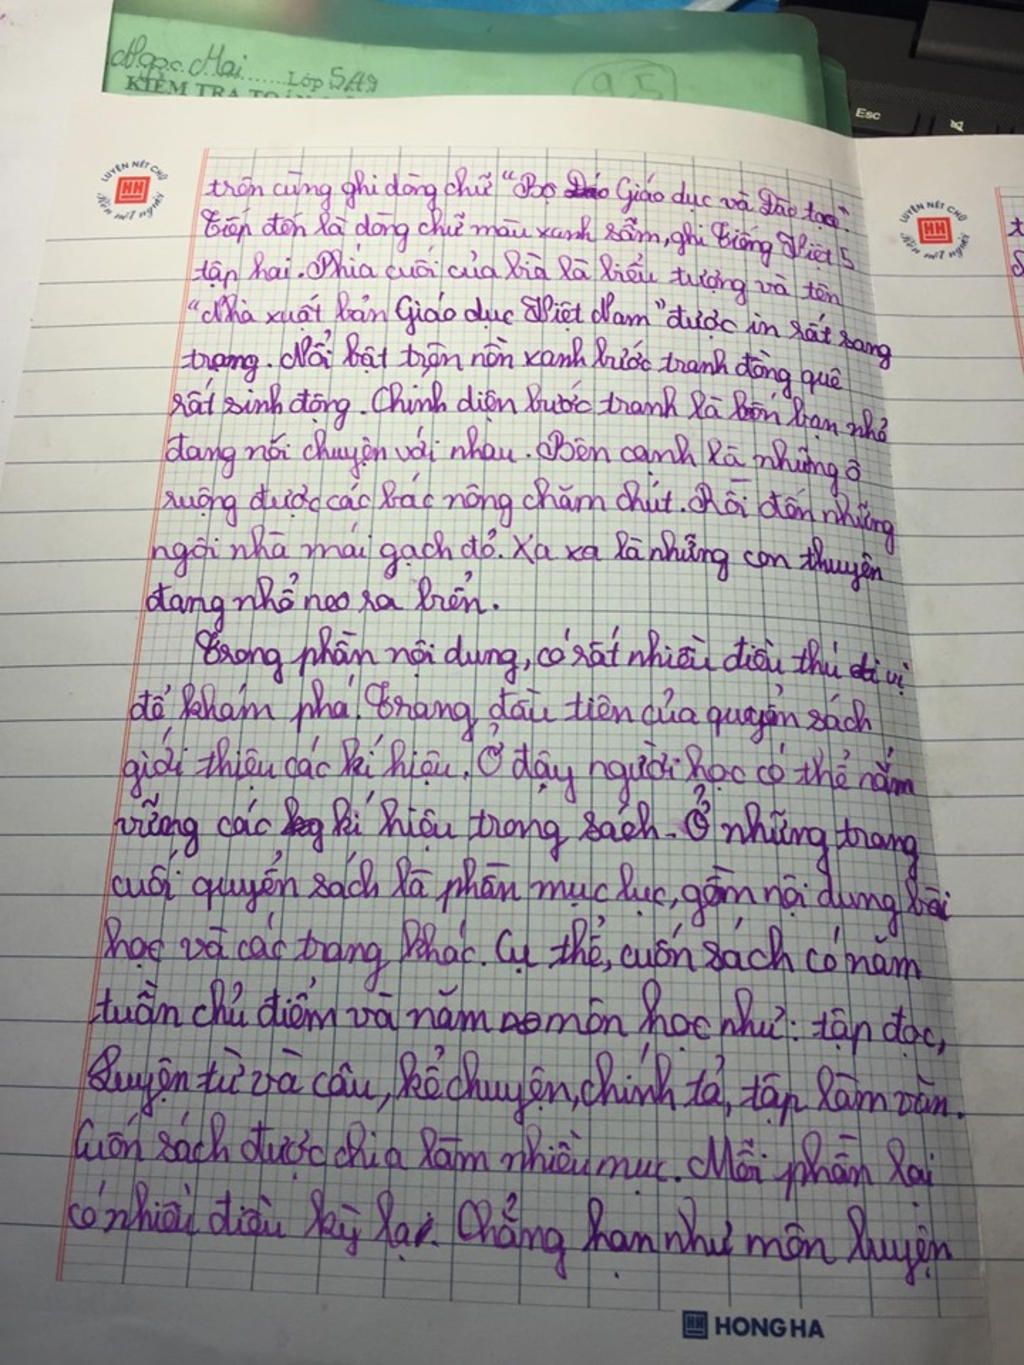 Ngọc Mai......Lớp 5A9
KIỂM TRA TOÁN
9,5
Esc
LUYỆN NÉT CHỮ
HH
Rèn nết người
LUYỆN NÉT CHỮ
HH
Rèn nết người
trên cùng ghi dòng chữ "Bộ Giáo dục và Đào tạo".
Tiếp đến là dòng chữ màu xanh sẫm, ghi Tiếng Việt 5
tập hai. Phía cuối của bìa là biểu tượng và tên
"Nhà xuất bản Giáo dục Việt Nam" được in rất sang
trọng. Nổi bật trên nền xanh bước tranh đồng quê
rất sinh động. Chính diện bước tranh là bốn bạn nhỏ
đang nói chuyện với nhau. Bên cạnh là những ô
ruộng được các bác nông chăm chút. Rồi đến những
ngôi nhà mái gạch đỏ. Xa xa là những con thuyền
đang nhổ neo ra biển.
Trong phần nội dung, có rất nhiều điều thú vị
để khám phá. Trang đầu tiên của quyển sách
giới thiệu các kí hiệu. Ở đây người học có thể nắm
vững các kí hiệu trong sách. Ở những trang
cuối quyển sách là phần mục lục, gồm nội dung bài
học và các trang khác. Cụ thể, cuốn sách có năm
tuần chủ điểm và năm môn học như: tập đọc,
luyện từ và câu, kể chuyện, chính tả, tập làm văn.
Cuốn sách được chia làm nhiều mục. Mỗi phần lại
có nhiều điều kỳ lạ. Chẳng hạn như môn luyện
HH HONG HA